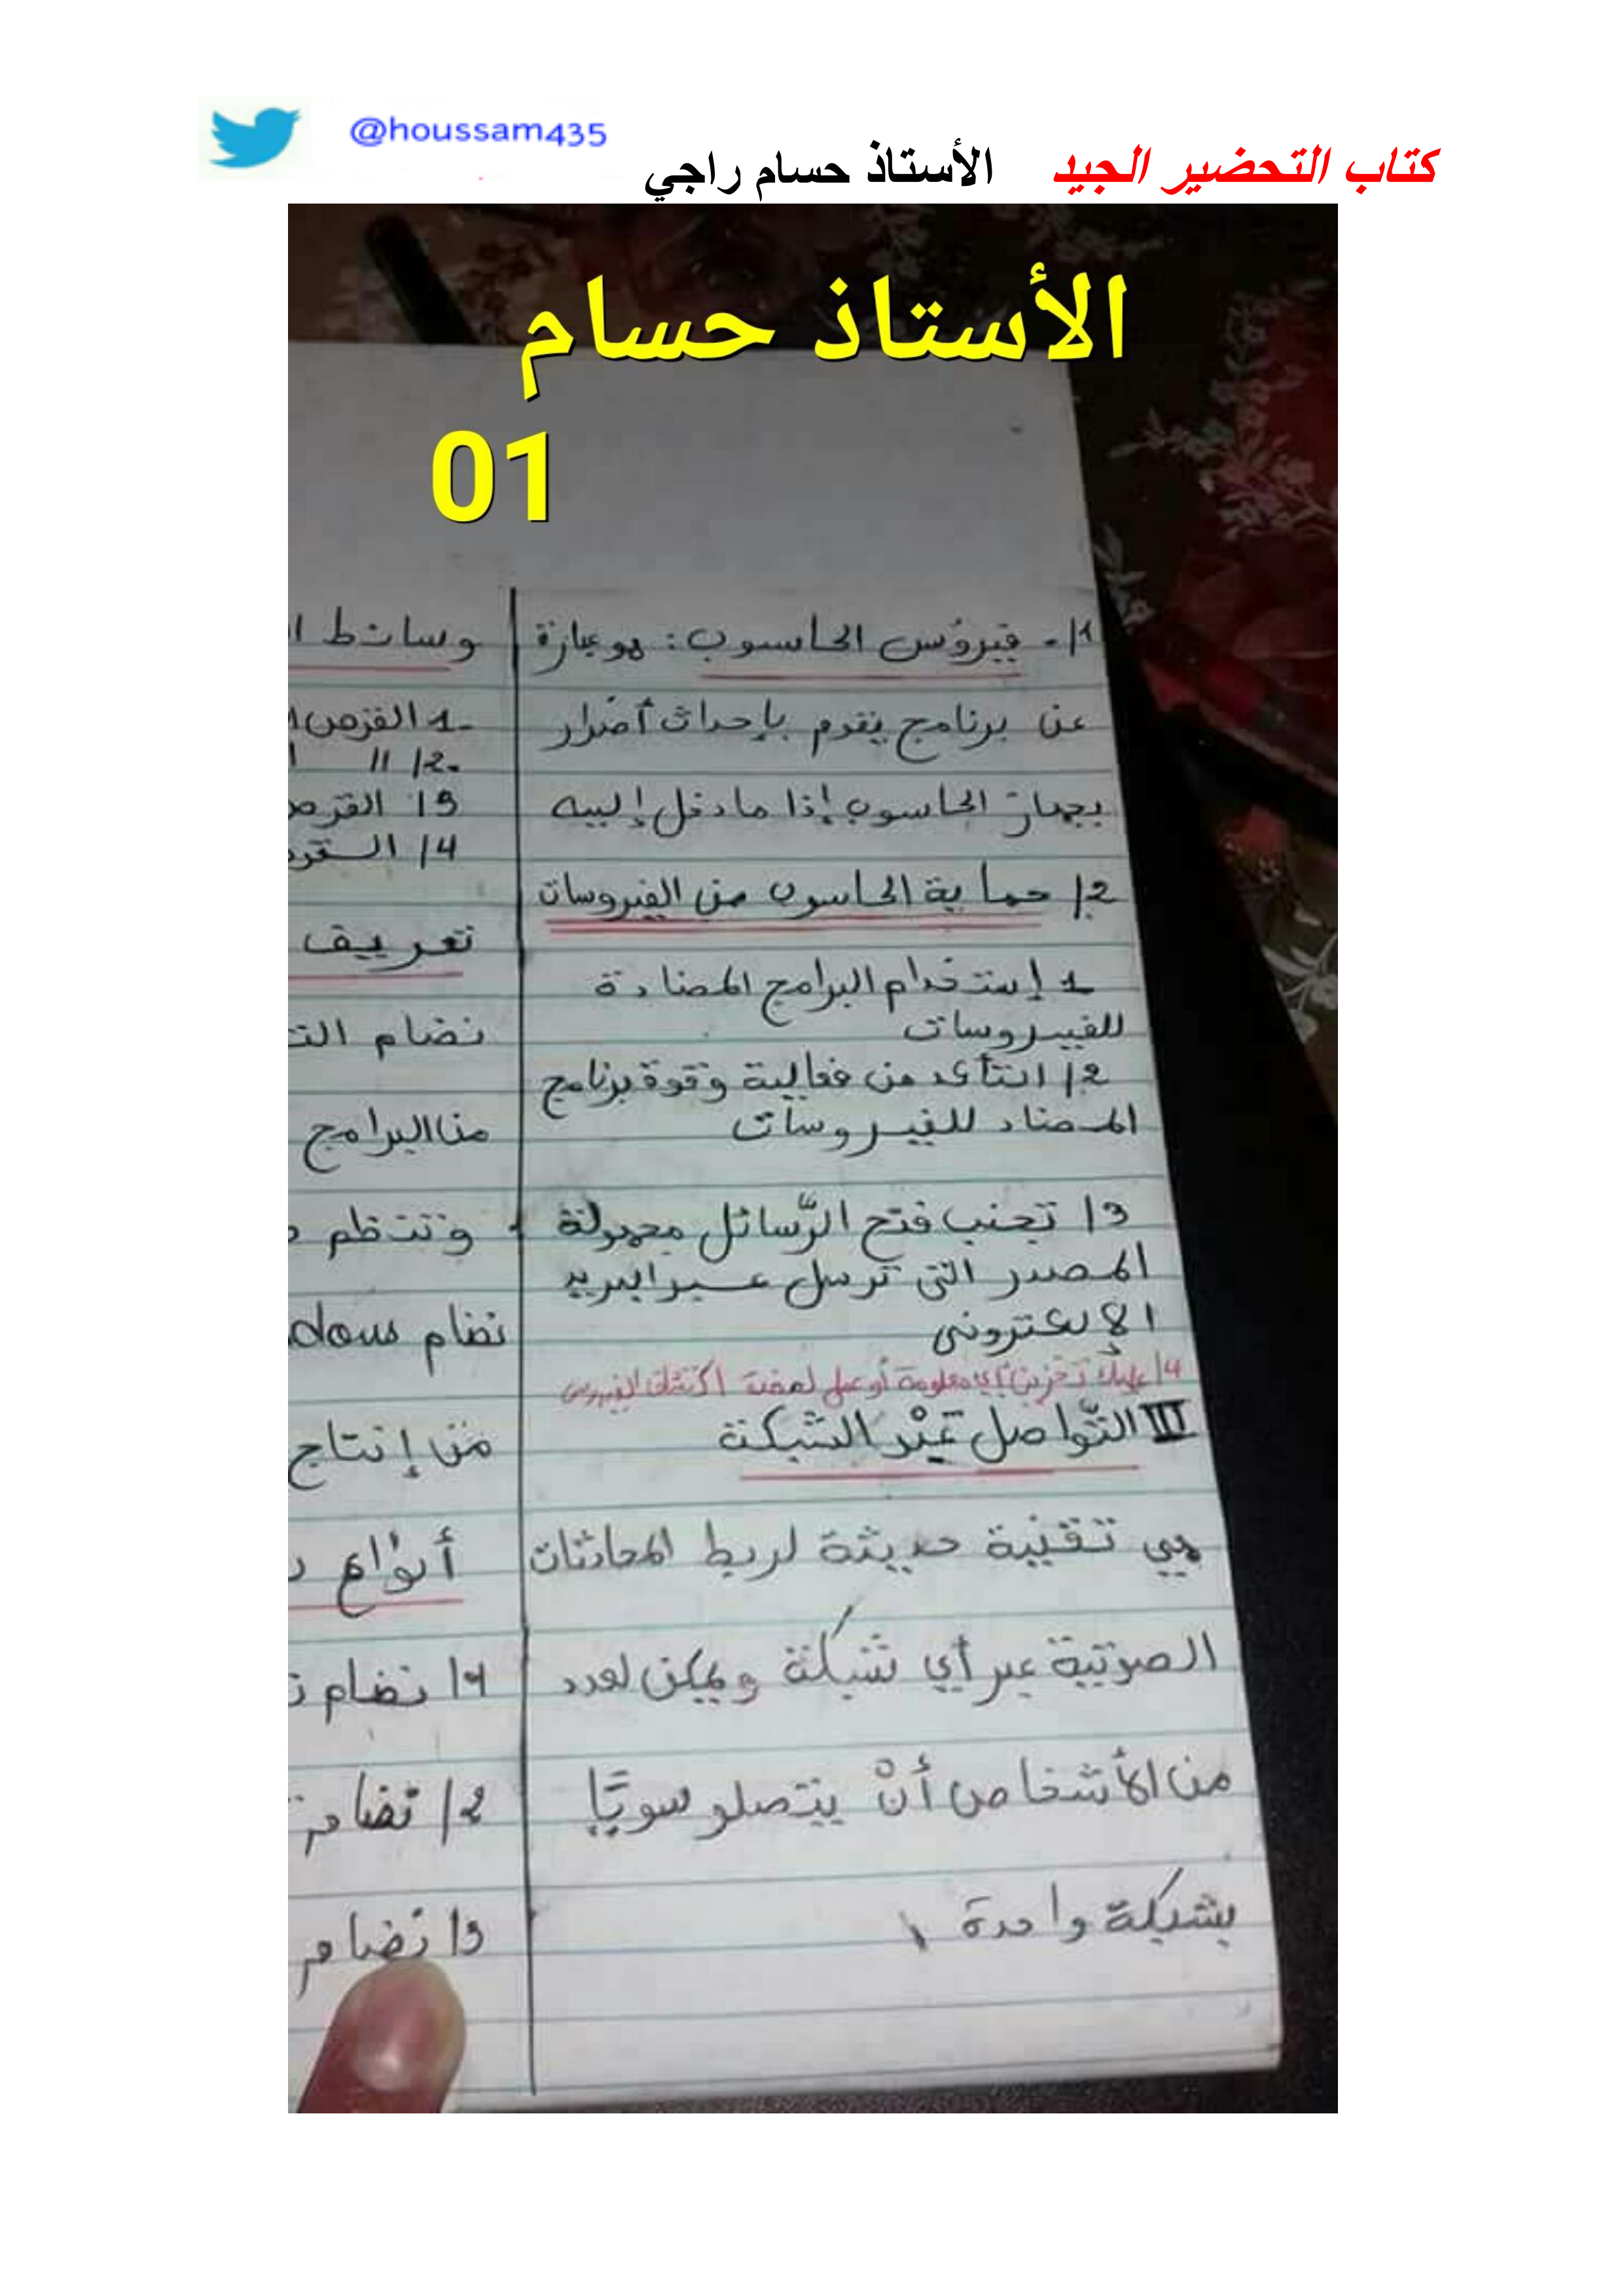 @houssam435
كتاب التحضير الجيد الأستاذ حسام راجي
الأستاذ حسام
01
1/- فيروس الحاسوب: هو عبارة
عن برنامج يقوم بإحداث أضرار
بجهاز الحاسوب إذا ما دخل إلييه
2/ حماية الحاسوب من الفيروسات
1 إستخدام البرامج المضادة
للفييروسات
2/ التأكد من فعالية وقوة برنامج
المضاد للفييروسات
3/ تجنب فتح الرّسائل مجهولة
المصدر التي ترسل عبر البريد
الإلكتروني
4/ عليك تخزين أي معلومة أو عمل لصفة اكتشاف الفيروس
III التّواصل عَبْر الشبكة
هي تقنية حديثة لربط المحادثات
الصوتية عبر أي شبكة ويمكن لعدد
من الأشخاص أنْ يتصلو سويًّا
بشبكة واحدة
وسائط ا
1- القرص ا
2/- //
3/ القرص
4/ القر
تعريف
نضام الت
من البرامج
وتنظم
نضام dows
من إنتاج
أنواع
1/ نضام
2/ نضام
3/ نضام